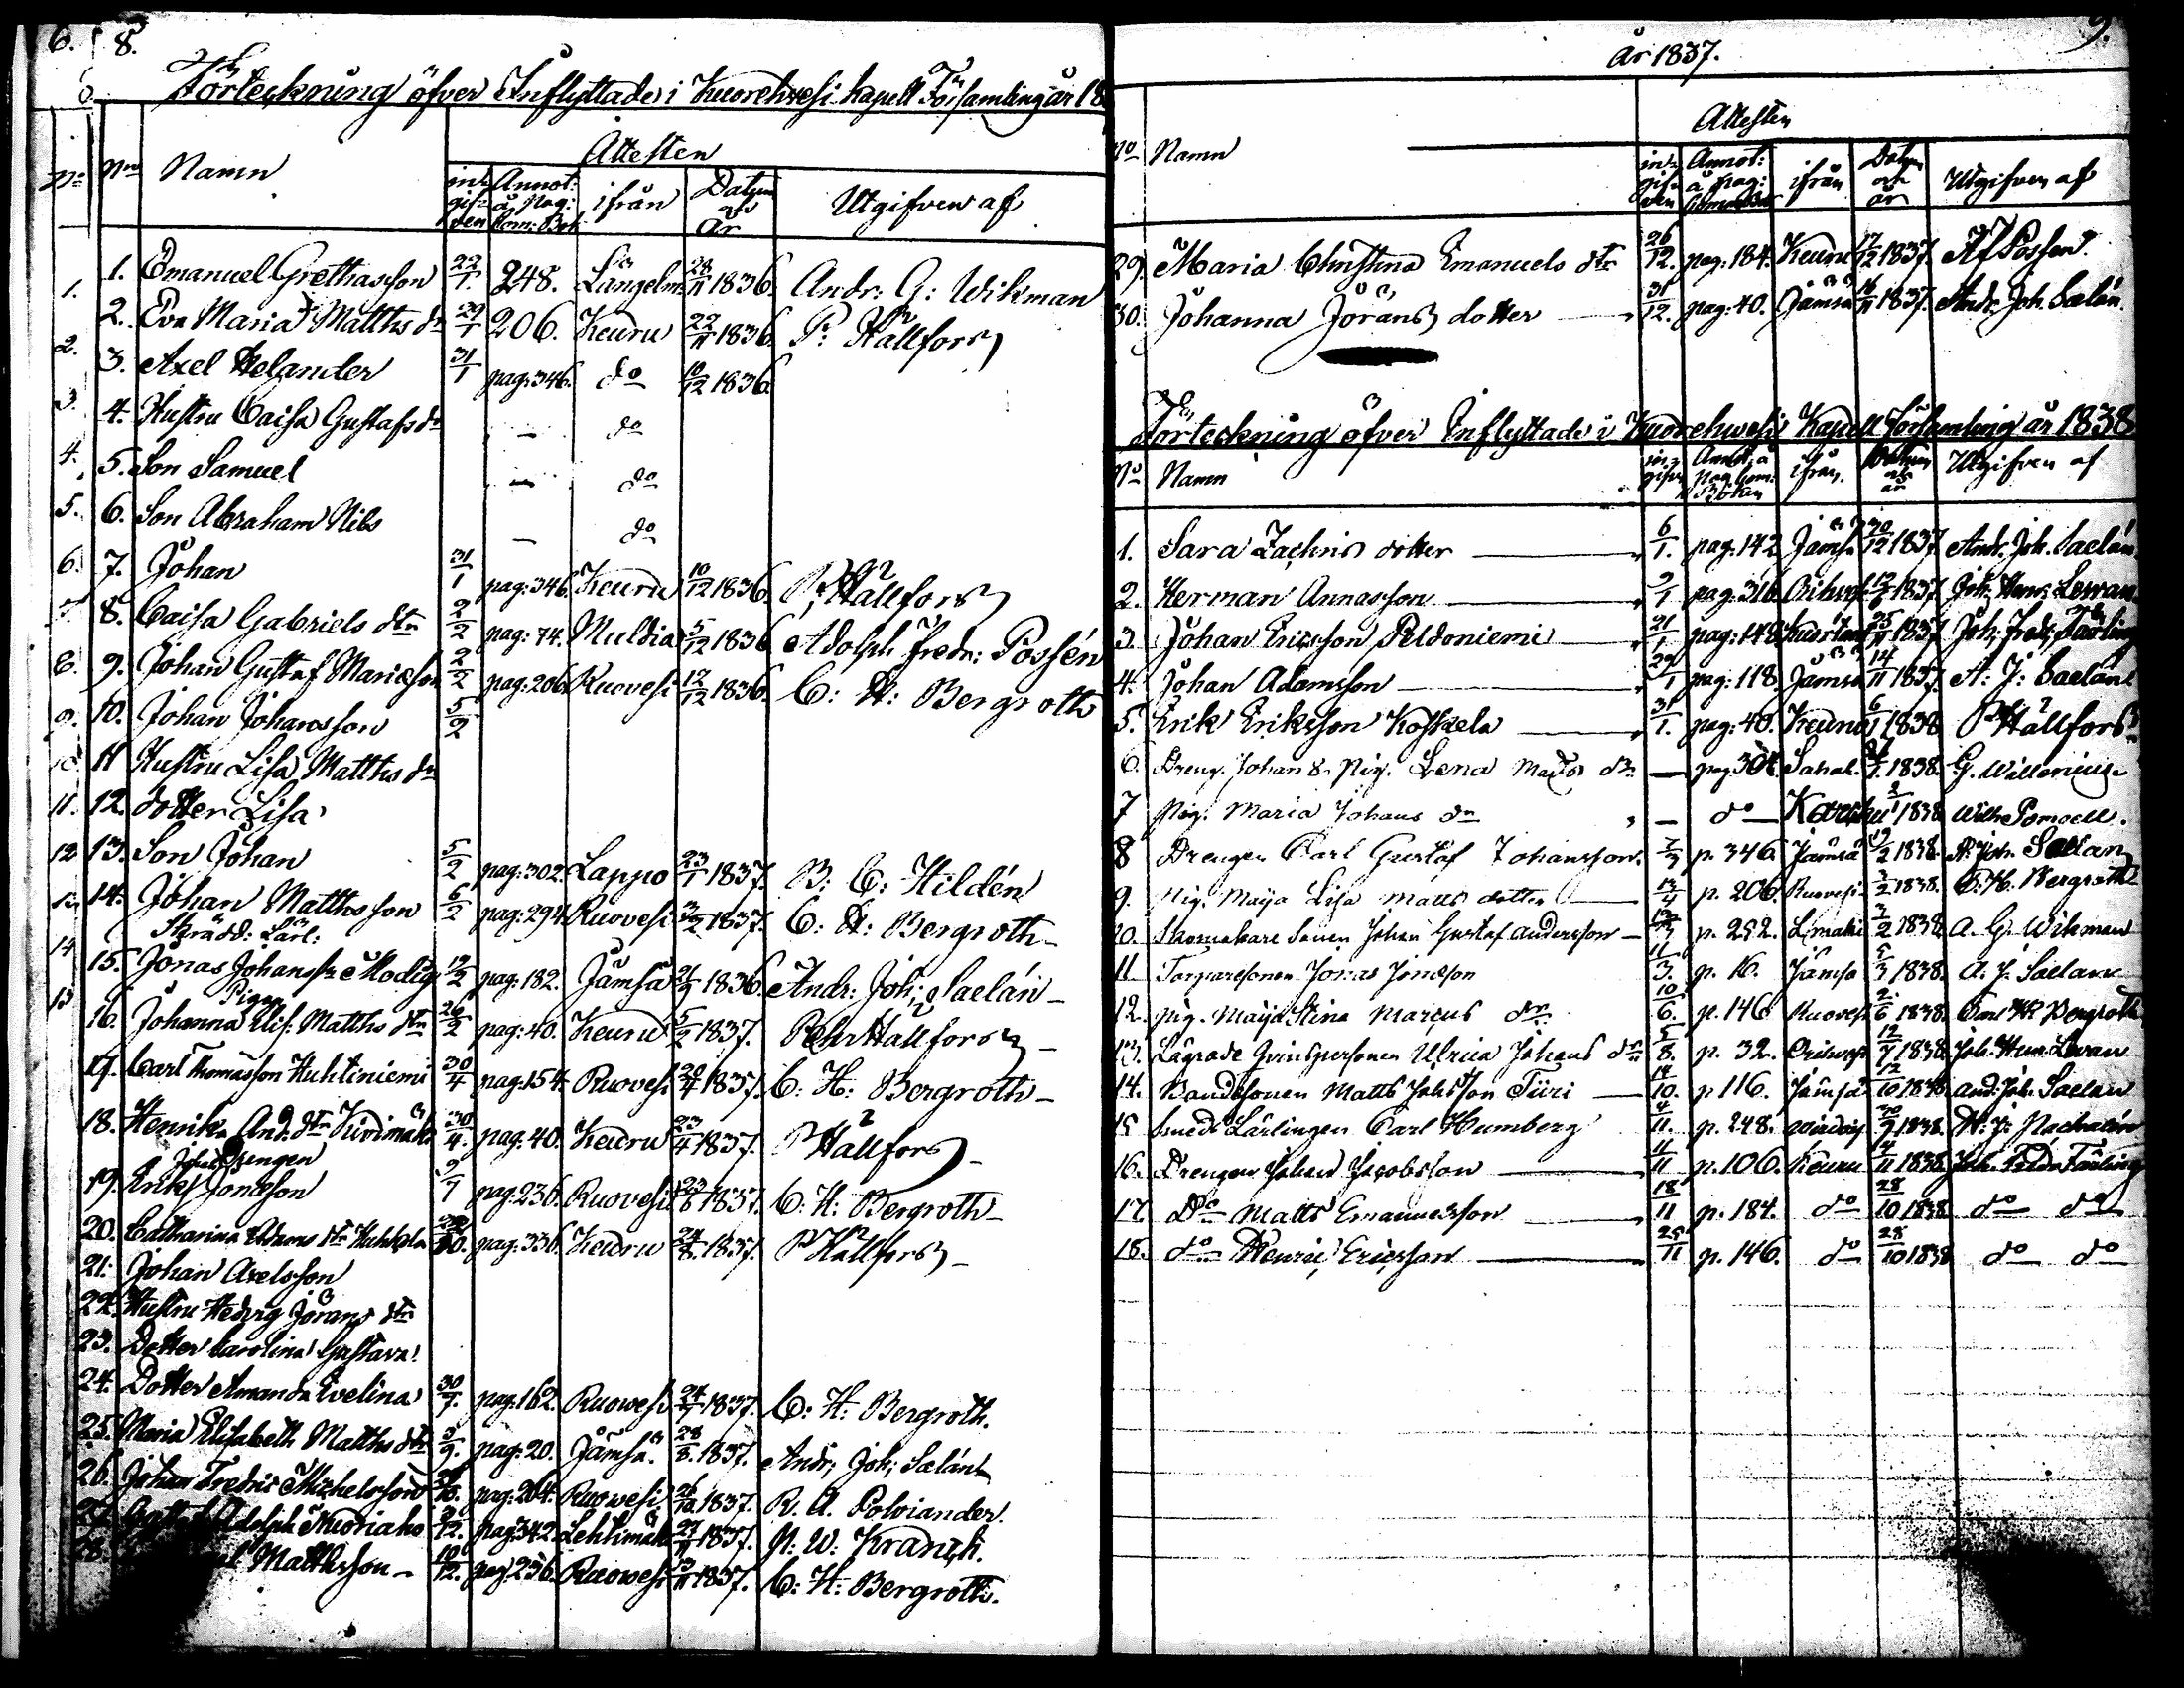 6. 8.
Förteckning öfver Inflyttade i Kuorehwesi Kapell Församling år 18
No Nro Namn Attesten
ingifven Annot: å pag: Kom: Bok ifrån Datum och År Utgifven af
1. Emanuel Grethasson 22/1 248. Längelm. 28/11 1836. Andr: G: Wikman
2. Eva Maria Matths dr 29/1 206. Keuru 29/11 1836. P: Hällfors
3. Axel Helander 31/1 pag: 346. do 10/12 1836.
4. Hustru Caisa Gustafs dr — do
5. Son Samuel — do
6. Son Abraham Nils — do
7. Johan 31/1 pag: 346. Keuru 10/12 1836. P: Hällfors
8. Caisa Gabriels dtr 2/2 pag: 74. Muldia 5/12 1836 Adolph Fredr: Possén
9. Johan Gustaf Mariæson 2/2 pag: 206. Ruovesi 12/12 1836. C: H: Bergroth
10. Johan Johansson 5/2
11 Hustru Lisa Matths dr
12. dotter Lisa
13. Son Johan 5/2 pag: 302. Lappo 23/1 1837. B: C: Hildén
14. Johan Matthsson 6/2 pag: 294. Ruovesi 3/2 1837. C: H: Bergroth
Skrädd: Lärl:
15. Jonas Johanss: Modig 12/2 pag: 182. Jämsä 1836. Andr: Joh: Saelán
Pigan
16. Johanna Ulis: Matths dtr 26/2 pag: 40. Keuru 5/2 1837. Pehr Hällfors
17. Carl Thomasson Huhtiniemi 30/4 pag: 154. Ruovesi 20/4 1837. C: H: Bergroth
18. Henrika And: dtr Kivimäki 30/4. pag: 40. Keuru 23/4 1837. P Hällfors
Drengen
19. Erik Jonæson pag: 236. Ruovesi 1837. C: H: Bergroth
20. Catharina Adams dtr pag: 336. Keuru 24/8. 1837. P Hällfors
21. Johan Axelsson
22. Hustru Hedvig Jörans dtr
23. Dotter Carolina Gustava
24. Dotter Amanda Evelina 30/7. pag: 162. Ruowesi 24/7 1837. C: H: Bergroth.
25. Maria Elisabeth Matths dtr pag: 20. Jämsä. 28/8. 1837. Andr; Joh; Sælán
26. Johan Fredric Michelsson pag: 204. Ruowesi 26/10 1837. R. A. Polviander.
27. Adolph Kuoriaho 12. pag: 342. Lehtimäki 27/11 1837. N. W. Krank.
28. Matthsson 10/12. pag: 236. Ruowesi 1837. C: H: Bergroth.
9.
år 1837.
No Namn Attesten
ingifven Annot: å pag: ifrån Datum och år Utgifven af
29. Maria Christina Emanuels dtr 26/12. pag: 184. Keuru 17/12 1837. Af Possen.
30. Johanna Jörans dotter 31/12. pag: 40. Jämsä 1837. Andr. Joh. Sælán.
Förteckning öfver Inflyttade i Kuorehwesi Kapell Församling år 1838
No Namn ingifv Annot: å pag Com: Boken ifrån Datum och år Utgifven af
1. Sara Zachris dotter 6/1. pag: 142 Jämsä 30/12 1837 Andr. Joh. Saelán
2. Herman Annasson 9/1 pag: 316. Orihvesi 1837. Joh: Henr: Lewan
3. Johan Ericsson Peldoniemi 21/1 pag: 148. 25/11 1837 Joh: Fred:
4. Johan Adamsson 29/1 pag: 118. Jämsä 14/11 1837. A: J: Saelán
5. Erik Eriksson Koskela 31/1. pag: 40. Keuru 6/1 1838 P Hällfors
6. Dreng. Johan & Pig. Lena Matts dr. — pag 301. Sahal. 1838. G. Willenius
7 Pig. Maria Johans dr — do 1838 Wilh Pomoell.
8 Drengen Carl Gustaf Johansson p. 346. Jämsä 19/2 1838. A: Joh. Saelan
9. Pig. Maija Lisa Matts dotter 13/4 p. 206. Ruovesi 3/2 1838. C. H. Bergroth
10. Skomakare Sonen Johan Gustaf Andersson p. 292. 3/2 1838 A. G. Wikman
11 Torparesonen Jonas Jonæson 11/3. p. 16. Jämsä 5/3 1838. A. J. Saelan
12. Pig. Maija Stina Marcus dr. 10/6. p. 146 Ruovesi 2/6 1838. Carl H Bergroth
13. Lägrade Qvinspersonen Ulrica Johans dr 5/8. p. 32. Orihvesi 12/7 1838. Joh. Hen. Levan
14. Bondesonen Matts Johsson Tiiri 14/10. p. 116. Jämsä 12/10 1838 And: Joh. Saelan
15 Smeds Lärlingen Carl Humberg 4/11. p. 248. 1838.
16. Drengen Johan Jacobsson 11/11 p. 106. Keuru 4/11 1838. Joh. Fredr
17. Do Matts Emanuelsson 18/11 p. 184. do 28/10 1838 do do
18. do Henric Ericsson 25/11 p. 146. do 28/10 1838 do do